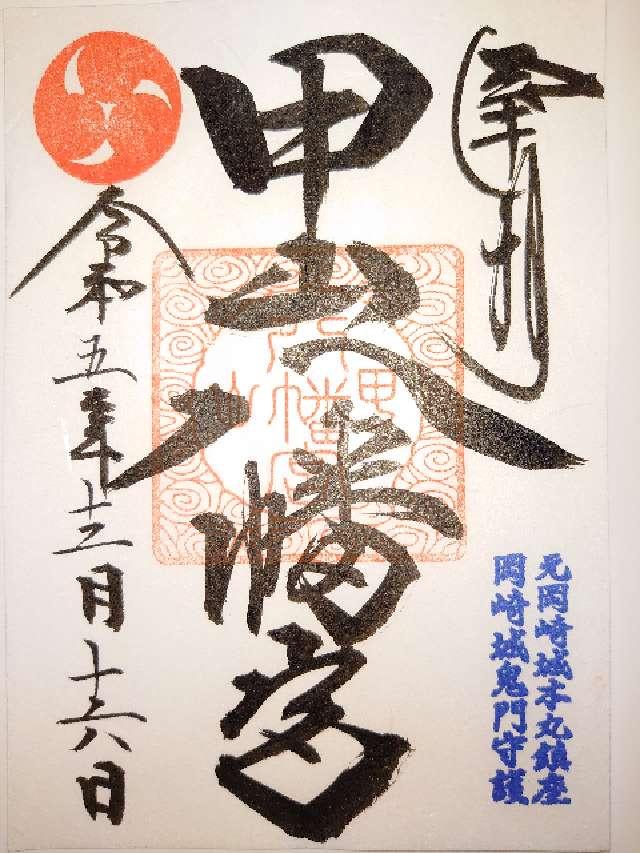 奉拝
元岡崎城本丸鎮座
岡崎城鬼門守護
甲山八幡宮
令和五年十二月十六日